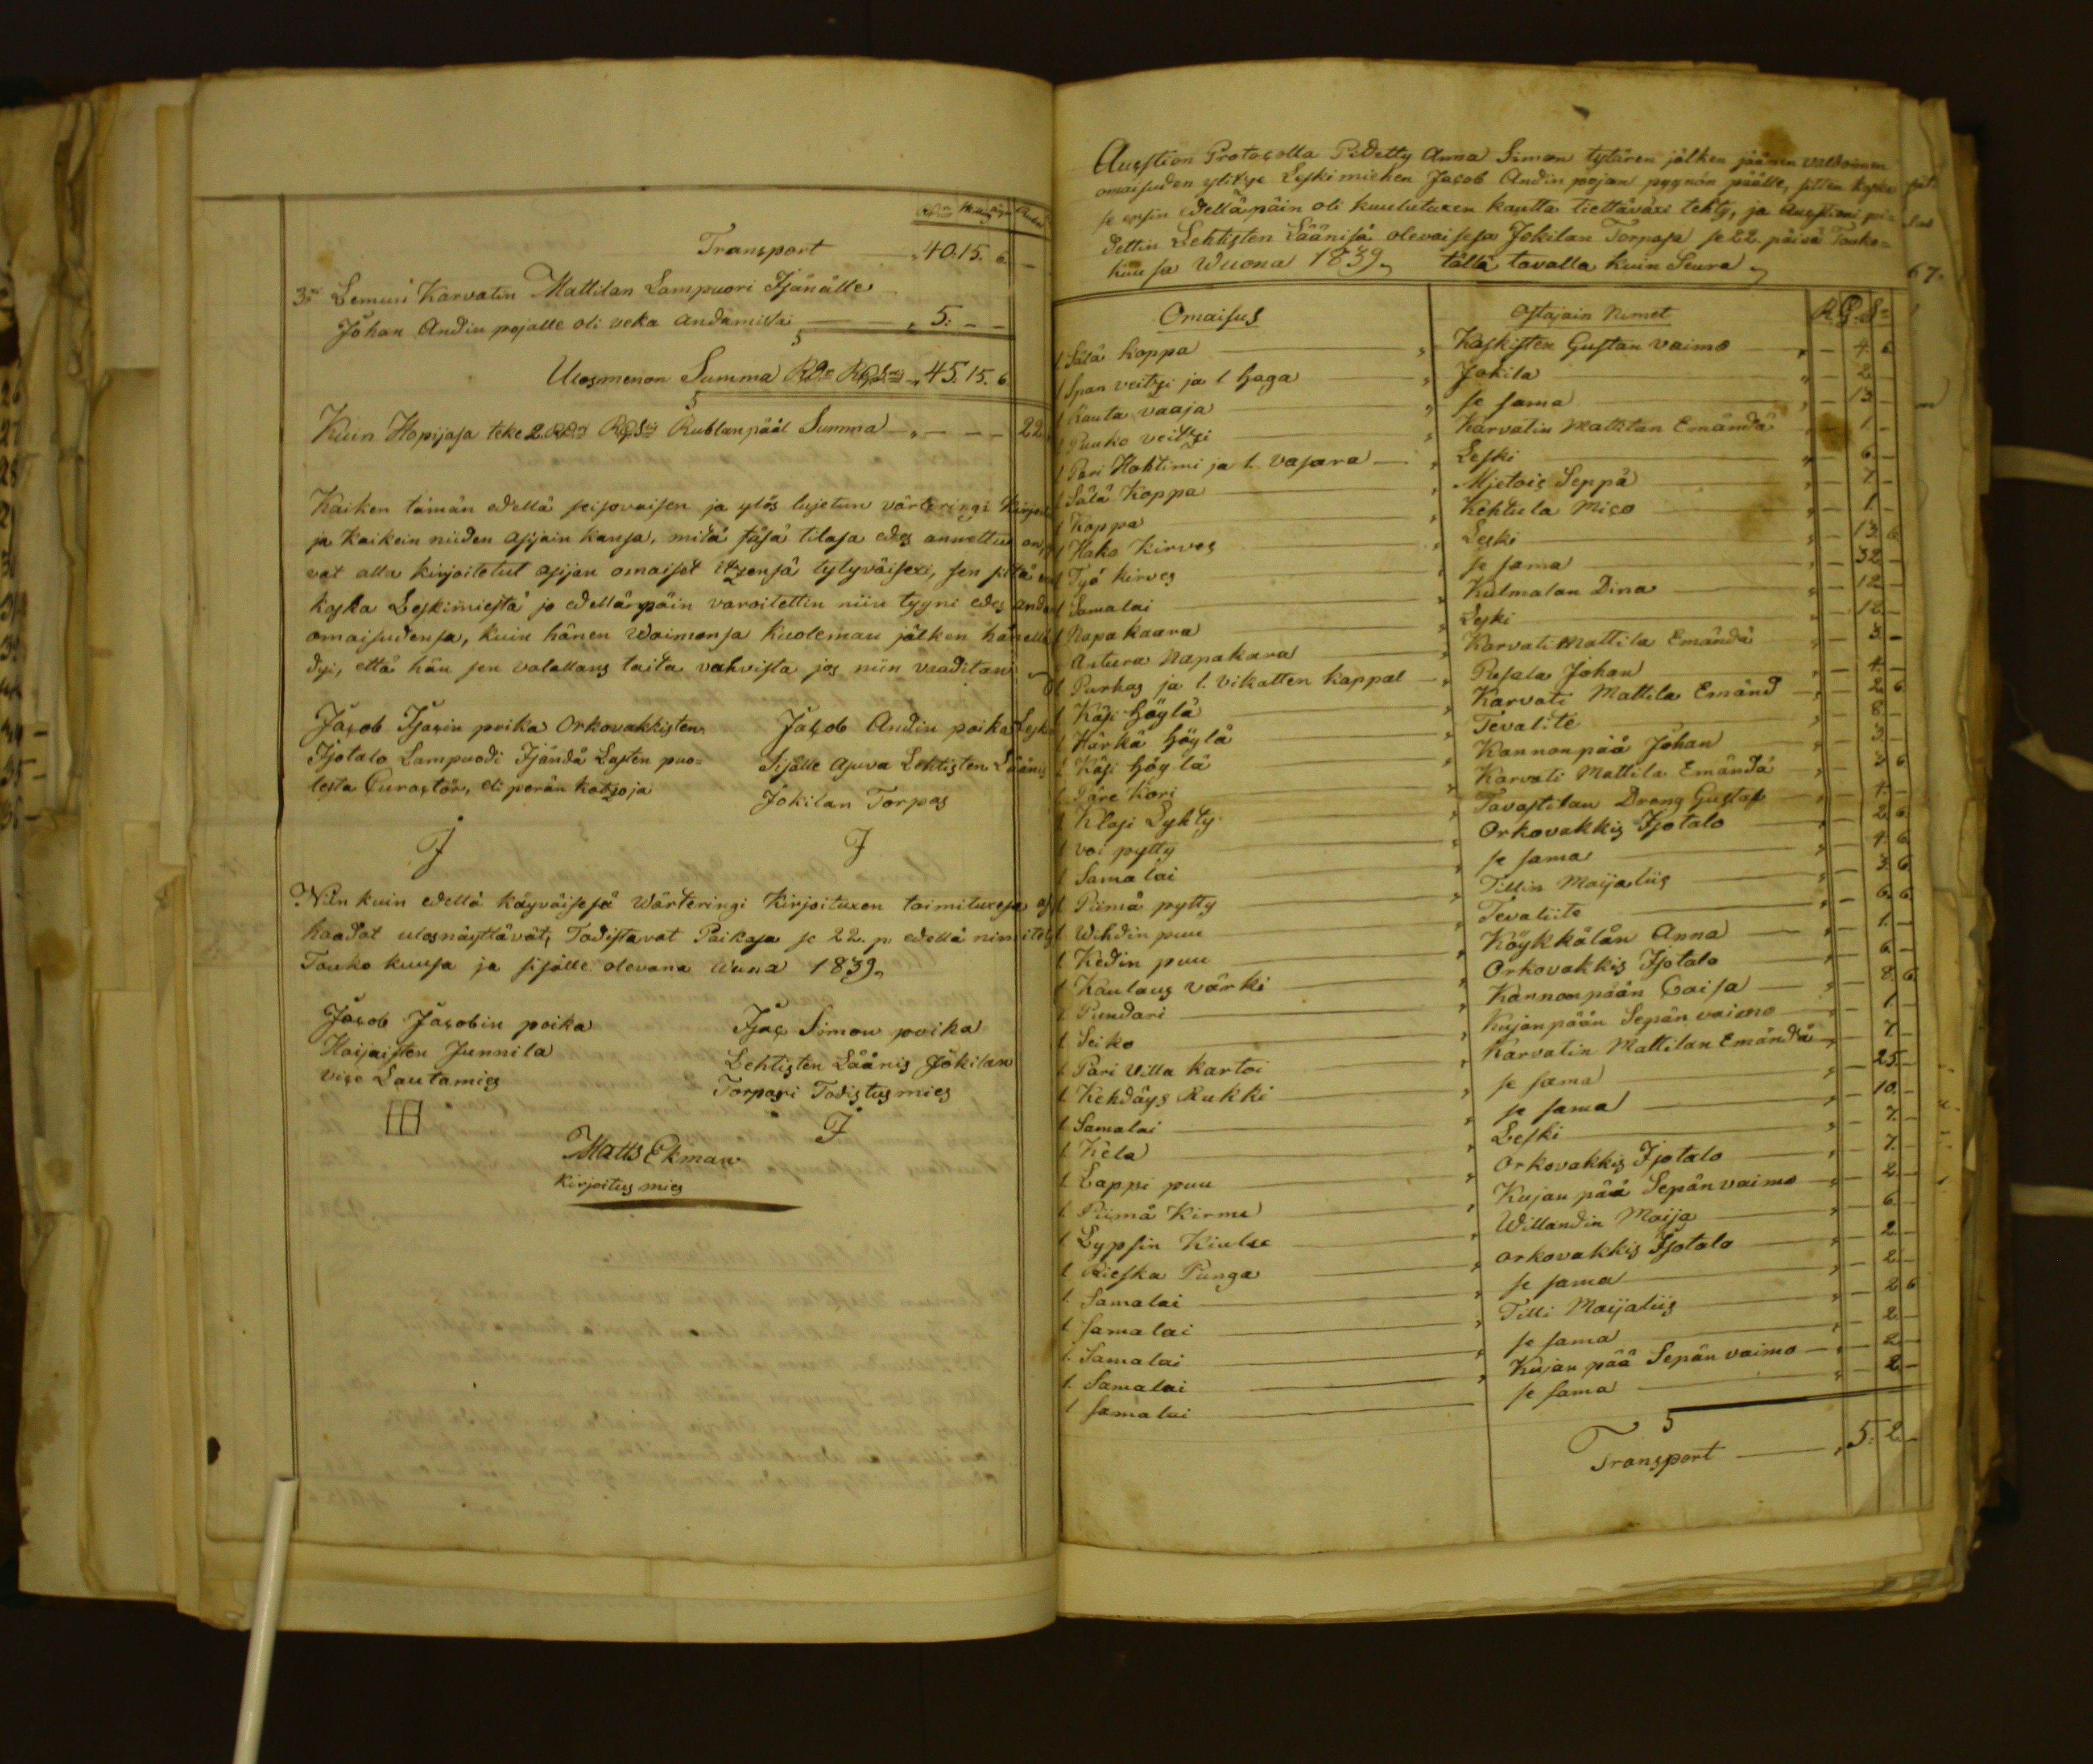 Transport — „ 40. 15. 6. —
3º Lemun Karvatin Mattilan Lampuori Isänälle
Johan Andin pojalle oli velka andamista — „ 5. — —
Ulosmenon Summa — „ 45. 15. 6.
Kuin Hopijasa teke 2 Rublan pääl Summa — „ — — — 22
Kaiken tämän edellä seisovaisen ja ylös lujetun värteringi Kirjoi
ja kaikein niiden asijain kansa, mitä täsä tilasa edes annettu on,
vat alla kirjoitetut asijan omaiset itzensä tytyväisexi, sen
koska Leskimiestä jo edellänpäin varoitettin niin tyyni edes anda
omaisudensa, kuin hänen Waimonsa Kuoleman jälken hänelle
dyi, että hän sen valallans taita vahvista jos niin vaaditan
Jacob Isacin poika Orkovakkisten Jacob Andin poika Leski
Isotalo Lampuodi Isändä Lasten puo= Sisälle asuva Lehtisten Läänis
lesta Curastör, eli perän katzoja Jokilan Torpas
I I
Niin kuin edellä käyväisesä Wärteringi Kirjoituxen toimituxesa
haadat ulosnäyttävät, Todistavat Paikasa se 22. p. edellä nimitety
Touko kuusa ja sisälle olevana Wuna 1839„
Jacob Jacobin poika Isac Simon poika
Haijaisten Junnila Lehtisten Läänis Jokilan
vice Lautamies Torpari Todistus mies
I
Matts Ekman
Kirjoitus mies
Auction Protocolla Pidetty Anna Simon tytären jälken jäänen
omaisuden ylitze Leskimiehen Jacob Andin pojan pyynön päälle, sitten koska
se ensin edellä päin oli kuulutuxen kautta tiettäväxi tehty, ja Auctioni pi=
dettin Lehtisten Läänisä olevaisesa Jokilan Torpasa se 22. päivä Touko=
kuusa Wuona 1839„ tällä tavalla kuin Seura„
67.
Omaisus Ostajain Nimet R. S.
1 Sälä koppa — „ Kaskisten Gustan vaimo — „ — 4. 6
1 Span veitzi ja 1 haga — „ Jokila — „ — 2 —
1 Rauta vaaja — „ se sama — „ — 13 —
1 Puuko veitzi — „ Karvatin Mattilan Emändä — 1. —
1 Pari Hohtimi ja 1. vasara — „ Leski — „ — 6 —
1 Sälä Koppa — „ Mietois Seppä — „ — 7 —
1 Koppa — „ Kehtula Mico — „ — 1 —
1 Hako Kirves — „ Leski — „ — 13. 6
1 Työ kirves — „ se sama — „ — 32 —
1 Samalai — „ Kulmalan Dina — „ — 12 —
1 Napa kaara — „ Leski — „ — 12 —
1 Antura Napakara — „ Karvati Mattila Emändä — 3. —
1 Purhas ja 1. vikatten kappal — „ Pusala Johan — „ — 4. —
1 Käsi höylä — „ Karvati Mattila Emänd — „ — 2 6
1 Härkä höylä — „ Tevalite — „ — 8 —
1 Käsi höylä — „ Kannonpää Johan — „ — 3 —
1 Päre Kori — „ Karvati Mattila Emändä — 3 6
1 Klasi Lykty — „ Tavastilan Dräng Gustaf — 4. —
1 voi pytty — „ Orkovakkis Isotalo — „ — 2 6
1 Samalai — „ se sama — „ — 4. 6
1 Piimä pytty — „ Tillin Maijaliis — „ — 3 6
1 Wihdin puu — „ Tevaliite — „ — 6 6
1 Kedin puu — „ Köykkälän Anna — „ — 1. —
1 Kaulaus värki — „ Orkovakkis Isotalo — „ — 6 —
1 Pundari — „ Kannonpään Caisa — „ — 8. 6
1 Seiko — „ Kujanpään Sepän vaimo — „ — 1 —
1 Pari Villa kartoi — „ Karvatin Mattilan Emändä — „ — 7 —
1 Kehdäys Rukki — „ se sama — „ — 25 —
1 Samalai — „ se sama — „ — 10. —
1 Kela — „ Leski — „ — 7. —
1 Lappi puu — „ Orkovakkis Isotalo — „ — 7. —
1 Piimä Kirnu — „ Kujan pää Sepän vaimo — „ — 2 —
1 Lypsin Kiulu — „ Willandin Maija — „ — 6. —
1 Rieska Punga — „ orkovakkis Isotalo — „ — 2 —
1 Samalai — „ se sama — „ — 2 —
1 samalai — „ Tilli Maijaliis — „ — 2 6
1. Samalai — „ se sama — „ — 2 —
1. Samalai — „ Kujan pää Sepän vaimo — „ — 2 —
1 samalai — „ se sama — „ — 2 —
Transport — „ 5. 2. —